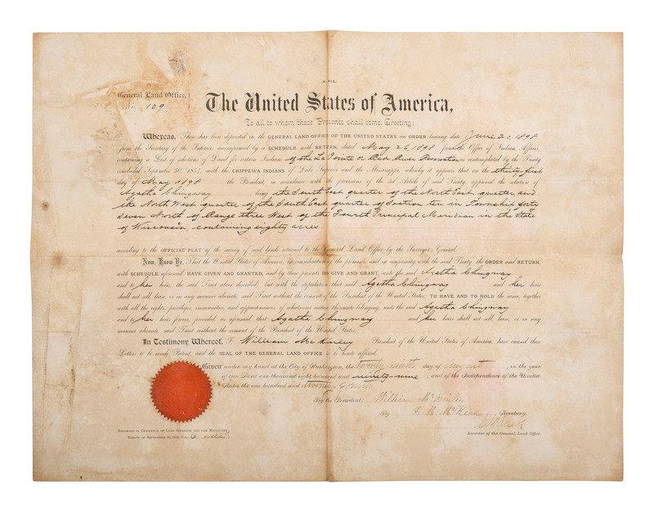 General Land Office,
No. 109
The United States of America,
To all to whom these Presents shall come, Greeting:
Whereas, There has been deposited in the GENERAL LAND OFFICE OF THE UNITED STATES an ORDER bearing date June 2, 1898
from the Secretary of the Interior, accompanied by a SCHEDULE with RETURN, dated May 26, 1898 from the Office of Indian Affairs,
containing a List of selections of Land for certain Indians of the La Pointe or Bad River Reservation contemplated by the Treaty
concluded September 30, 1854, with the CHIPPEWA INDIANS of Lake Superior and the Mississippi, whereby it appears that on the thirty first
day of May 1898 the President, in accordance with the provisions of the 3d Article of said Treaty, approved the selection of
Agatha Chingway being the South East quarter of the North East quarter and
the North West quarter of the South East quarter of Section ten in Township forty
seven North of Range three West of the Fourth Principal Meridian in the State
of Wisconsin, containing eighty acres
according to the OFFICIAL PLAT of the survey of said lands returned to the General Land Office by the Surveyor General.
Now, Know Ye, That the United States of America, in consideration of the premises, and in conformity with the said Treaty, the ORDER and RETURN,
with SCHEDULE, aforesaid, HAVE GIVEN AND GRANTED, and by these presents DO GIVE AND GRANT, unto the said Agatha Chingway
and to her heirs, the said Tract above described, but with the stipulation that said Agatha Chingway and her heirs
shall not sell, lease, or in any manner alienate, said Tract without the consent of the President of the United States. TO HAVE AND TO HOLD the same, together
with all the rights, privileges, immunities, and appurtenances, of whatsoever nature, thereunto belonging, unto the said Agatha Chingway
and to her heirs forever, provided as aforesaid, that Agatha Chingway and her heirs shall not sell, lease, or in any
manner alienate, said Tract without the consent of the President of the United States.
In Testimony Whereof, I, William McKinley President of the United States of America, have caused these
Letters to be made Patent, and the SEAL OF THE GENERAL LAND OFFICE to be hereto affixed.
Given under my hand at the City of Washington, the day of August, in the year
of our Lord one thousand eight hundred and ninety-nine, and of the Independence of the United
States the one hundred and twenty-fourth
By the President: William McKinley
By F. M. McKean, Secretary.
Recorder of the General Land Office.